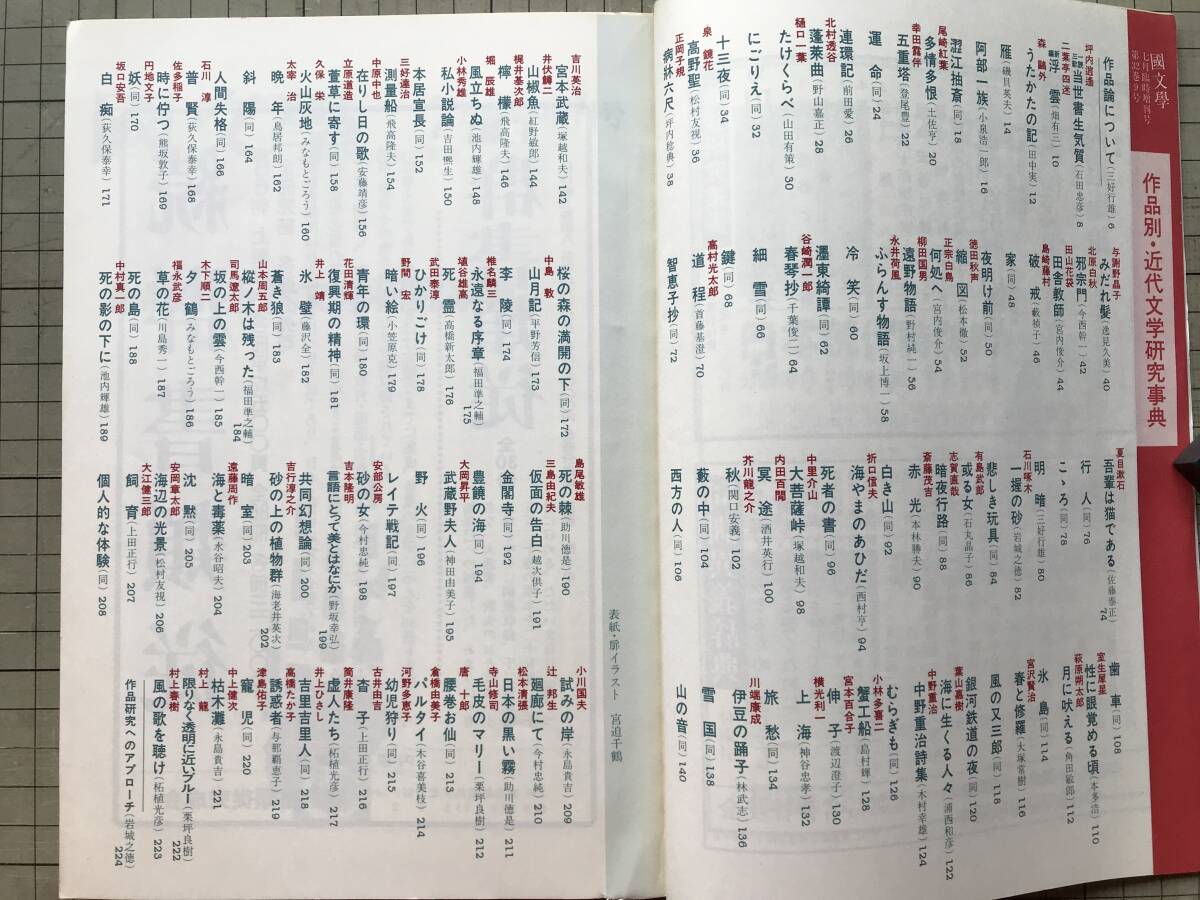 國文學
七月臨時増刊号
第32巻9号
作品別・近代文学研究事典
作品論について(三好行雄)6
坪内逍遥
当世書生気質(石田忠彦)8
二葉亭四迷
浮雲(畑有三)10
森鷗外
うたかたの記(田中実)12
雁(磯貝英夫)14
阿部一族(小泉浩一郎)16
澀江抽斎(同)18
尾崎紅葉
多情多恨(土佐亨)20
幸田露伴
五重塔(登尾豊)22
運命(同)24
連環記(前田愛)26
北村透谷
蓬萊曲(野山嘉正)28
樋口一葉
たけくらべ(山田有策)30
にごりえ(同)32
十三夜(同)34
泉鏡花
高野聖(笠原伸夫)36
正岡子規
病牀六尺(坪内稔典)38
与謝野晶子
みだれ髪(逸見久美)40
北原白秋
邪宗門(今西幹一)42
田山花袋
田舎教師(宮内俊介)44
島崎藤村
破戒(藪禎子)46
家(同)48
夜明け前(同)50
徳田秋声
縮図(松本徹)52
正宗白鳥
何処へ(宮内俊介)54
柳田国男
遠野物語(野村純一)56
永井荷風
ふらんす物語(坂上博一)58
冷笑(同)60
濹東綺譚(同)62
谷崎潤一郎
春琴抄(千葉俊二)64
細雪(同)66
鍵(同)68
高村光太郎
道程(首藤基澄)70
智恵子抄(同)72
夏目漱石
吾輩は猫である(佐藤泰正)74
行人(同)76
こゝろ(同)78
明暗(三好行雄)80
石川啄木
一握の砂(岩城之徳)82
悲しき玩具(同)84
有島武郎
或る女(石丸晶子)86
志賀直哉
暗夜行路(同)88
斎藤茂吉
赤光(本林勝夫)90
白き山(同)92
折口信夫
海やまのあひだ(西村亨)94
死者の書(同)96
中里介山
大菩薩峠(塚越和夫)98
内田百閒
冥途(酒井英行)100
芥川龍之介
秋(関口安義)102
藪の中(同)104
西方の人(同)106
歯車(同)108
室生犀星
性に眼覚める頃(本多浩)110
萩原朔太郎
月に吠える(角田敏郎)112
氷島(同)114
宮沢賢治
春と修羅(大塚常樹)116
風の又三郎(同)118
銀河鉄道の夜(同)120
葉山嘉樹
海に生くる人々(浦西和彦)122
中野重治
中野重治詩集(木村幸雄)124
むらぎも(同)126
小林多喜二
蟹工船(島村輝)128
宮本百合子
伸子(渡辺澄子)130
横光利一
上海(神谷忠孝)132
旅愁(同)134
川端康成
伊豆の踊子(林武志)136
雪国(同)138
山の音(同)140
吉川英治
宮本武蔵(塚越和夫)142
井伏鱒二
山椒魚(紅野敏郎)144
梶井基次郎
檸檬(飛高隆夫)146
堀辰雄
風立ちぬ(池内輝雄)148
小林秀雄
私小説論(吉田凞生)150
本居宣長(同)152
三好達治
測量船(飛高隆夫)154
中原中也
在りし日の歌(安藤靖彦)156
立原道造
萱草に寄す(同)158
久保栄
火山灰地(みなもとごろう)160
太宰治
晩年(鳥居邦朗)162
斜陽(同)164
人間失格(同)166
石川淳
普賢(荻久保泰幸)168
佐多稲子
時に佇つ(熊坂敦子)169
円地文子
妖(同)170
坂口安吾
白痴(荻久保泰幸)171
桜の森の満開の下(同)172
中島敦
山月記(平野芳信)173
李陵(同)174
椎名麟三
永遠なる序章(福田準之輔)175
埴谷雄高
死霊(高橋新太郎)176
武田泰淳
ひかりごけ(同)178
野間宏
暗い絵(小笠原克)179
青年の環(同)180
花田清輝
復興期の精神(同)181
井上靖
氷壁(藤沢全)182
蒼き狼(同)183
山本周五郎
樅ノ木は残った(福田準之輔)184
司馬遼太郎
坂の上の雲(今西幹一)185
木下順二
夕鶴(みなもとごろう)186
福永武彦
草の花(川島秀一)187
死の島(同)188
中村真一郎
死の影の下に(池内輝雄)189
島尾敏雄
死の棘(助川徳是)190
三島由紀夫
仮面の告白(越次倶子)191
金閣寺(同)192
豊饒の海(同)194
大岡昇平
武蔵野夫人(神田由美子)195
野火(同)196
レイテ戦記(同)197
安部公房
砂の女(今村忠純)198
吉本隆明
言語にとって美とはなにか(野坂幸弘)199
共同幻想論(同)200
吉行淳之介
砂の上の植物群(海老井英次)202
暗室(同)203
遠藤周作
海と毒薬(水谷昭夫)204
沈黙(同)205
安岡章太郎
海辺の光景(松村友視)206
大江健三郎
飼育(上田正行)207
個人的な体験(同)208
小川国夫
試みの岸(永島貴吉)209
辻邦生
廻廊にて(今村忠純)210
松本清張
日本の黒い霧(助川徳是)211
寺山修司
毛皮のマリー(栗坪良樹)212
唐十郎
腰巻お仙(同)213
倉橋由美子
パルタイ(木谷喜美枝)214
河野多恵子
幼児狩り(同)215
古井由吉
杳子(上田正行)216
筒井康隆
虚人たち(柘植光彦)217
井上ひさし
吉里吉里人(同)218
高橋たか子
誘惑者(与那覇恵子)219
津島佑子
寵児(同)220
中上健次
枯木灘(永島貴吉)221
村上龍
限りなく透明に近いブルー(栗坪良樹)222
村上春樹
風の歌を聴け(柘植光彦)223
作品研究へのアプローチ(岩城之徳)224
表紙・扉イラスト 宮迫千鶴